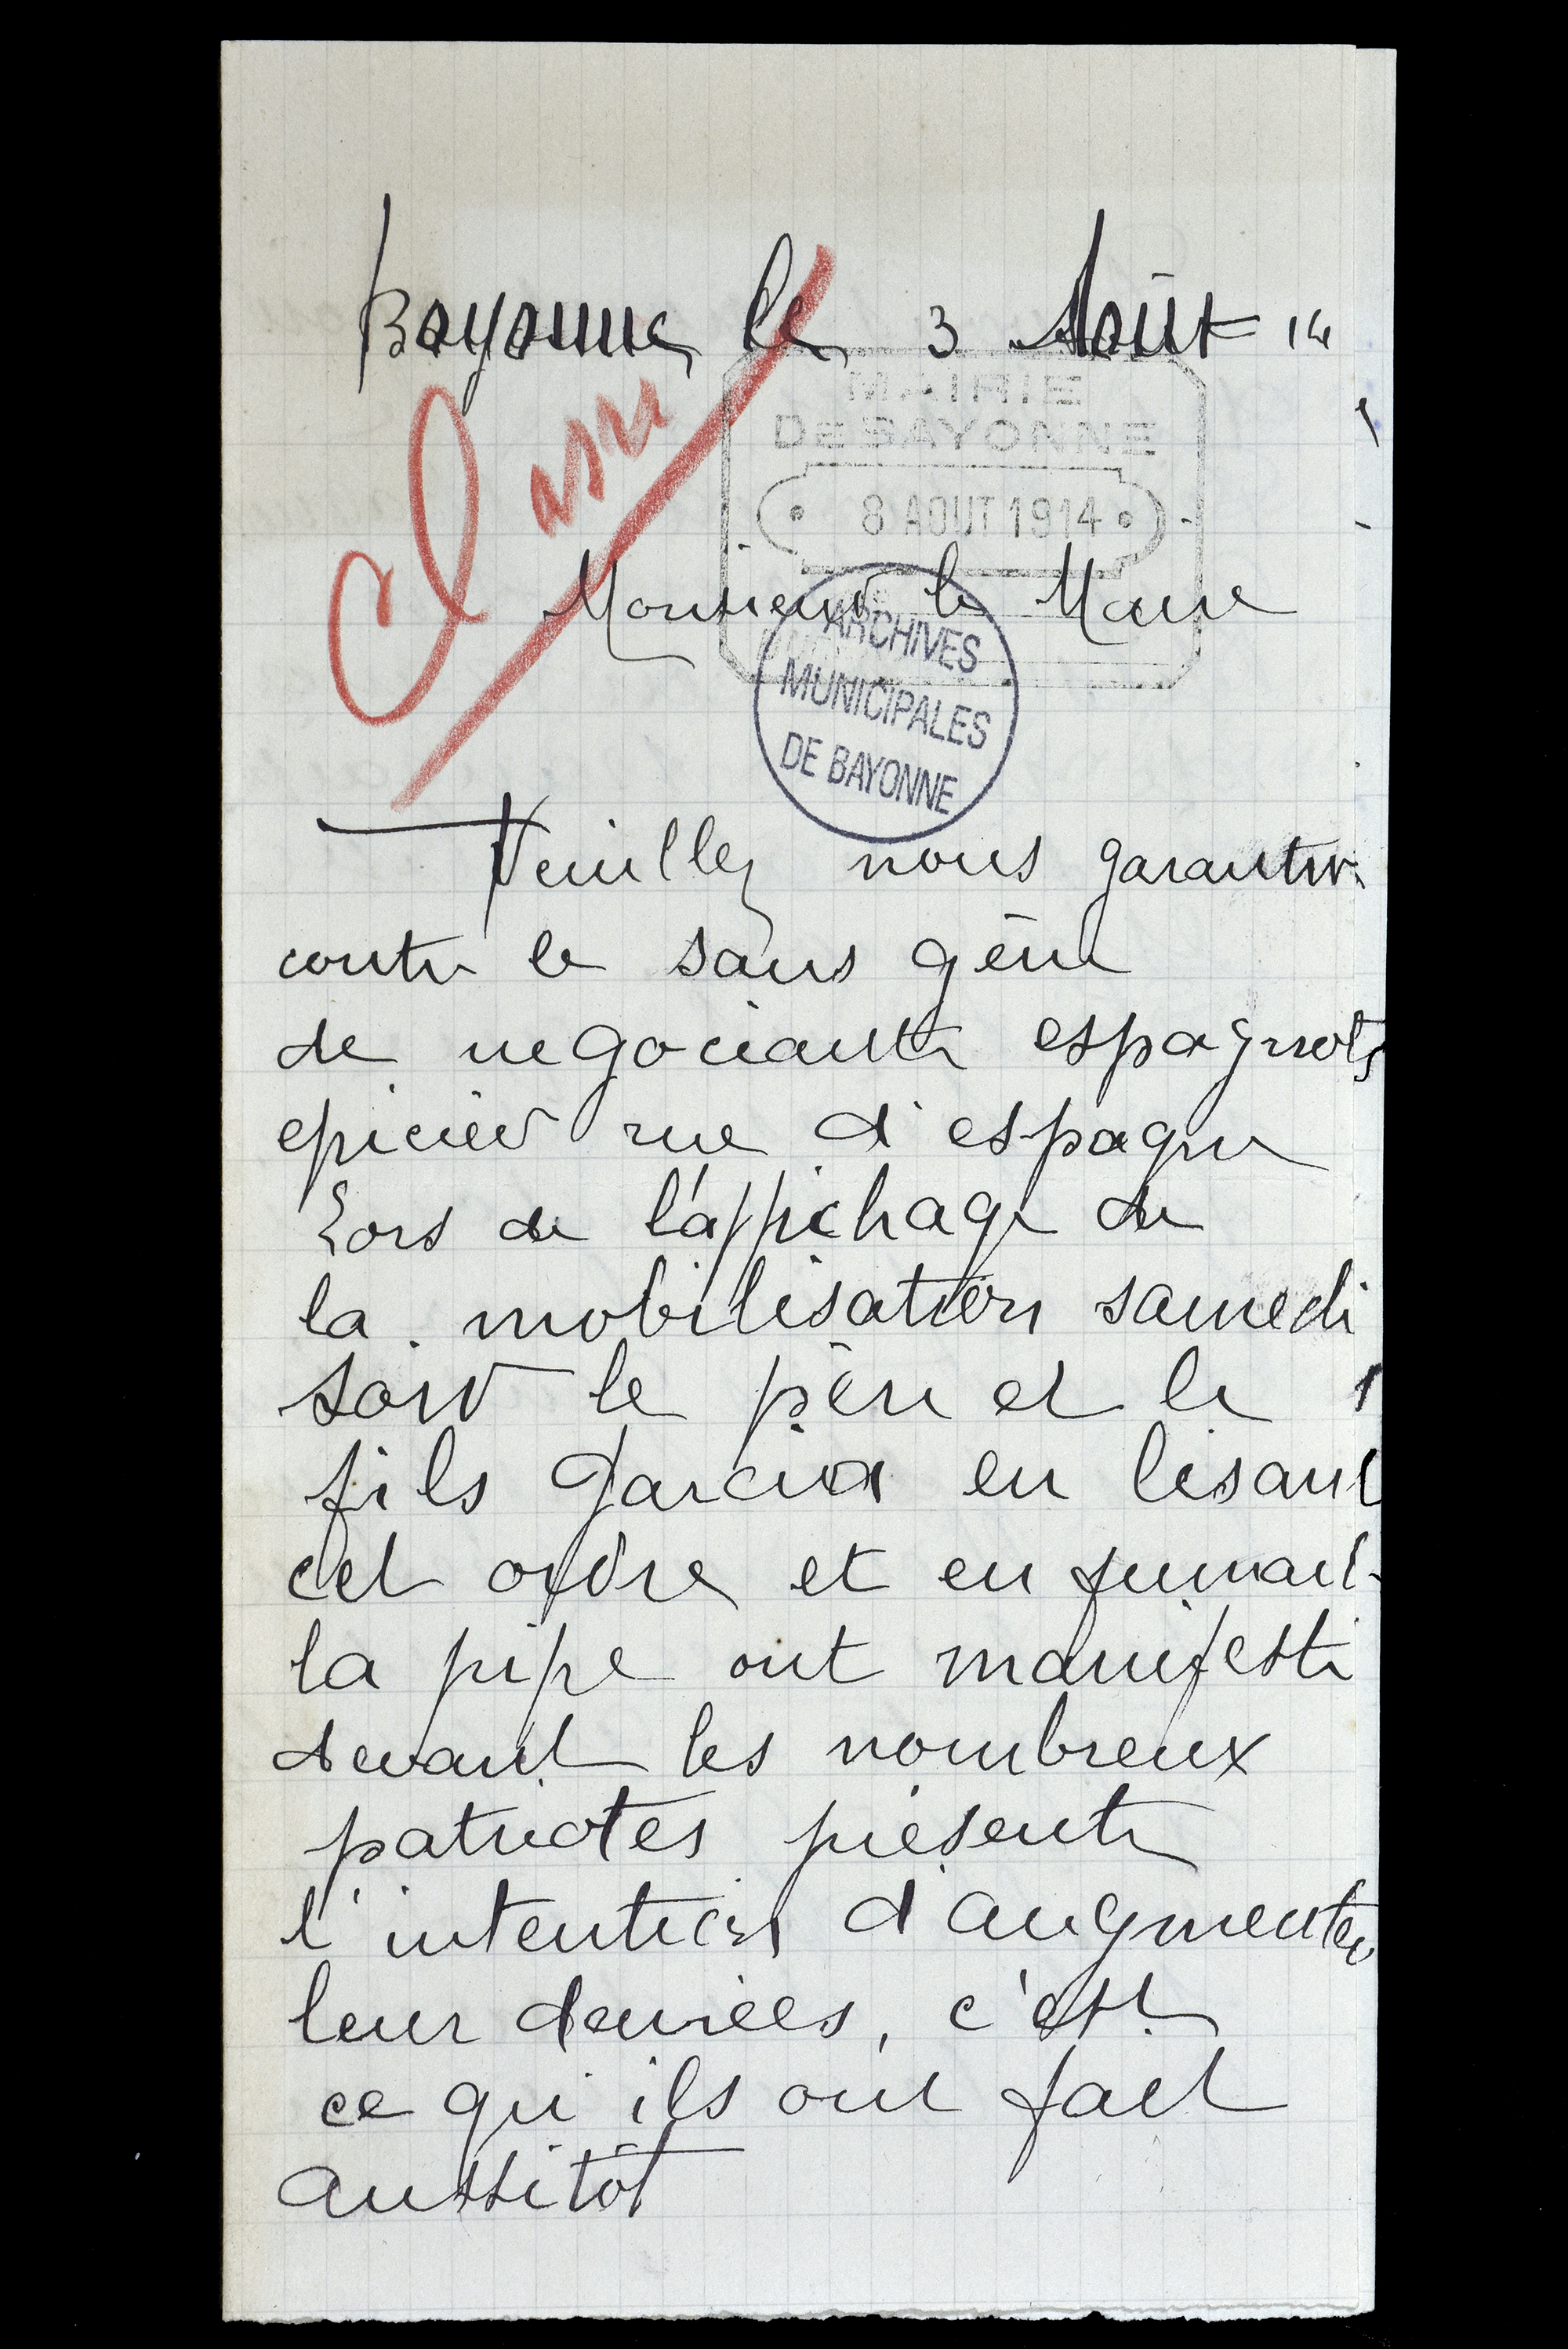 Bayonne le 3 Août 14
Classé
MAIRIE
DE BAYONNE
8 AOUT 1914
Monsieur le Maire
ARCHIVES
MUNICIPALES
DE BAYONNE
Veuillez nous garantir
contre le sans gêne
de negociants espagnols
epicier rue d'espagne
Lors de l'affichage de
la mobilisation samedi
soir le père et le
fils Garcia en lisant
cet ordre et en fumant
la pipe ont manifesté
devant les nombreux
patriotes présents
l'intention d'augmenter
leur denrées, c'est
ce qu'ils ont fait
aussitôt